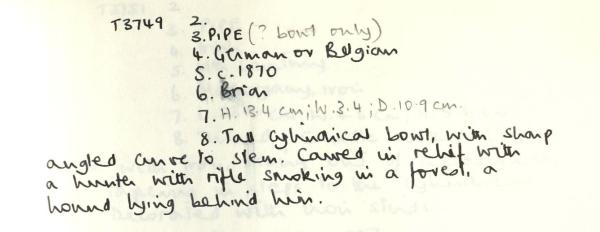 T3749 2.
3. PIPE (? bowl only)
4. German or Belgian
5. c.1870
6. Brian
7. H. 13.4 cm; W. 3.4; D. 10.9 cm.
8. Tall cylindrical bowl, with sharp
angled curve to stem. Carved in relief with
a hunter with rifle smoking in a forest, a
hound lying behind him.